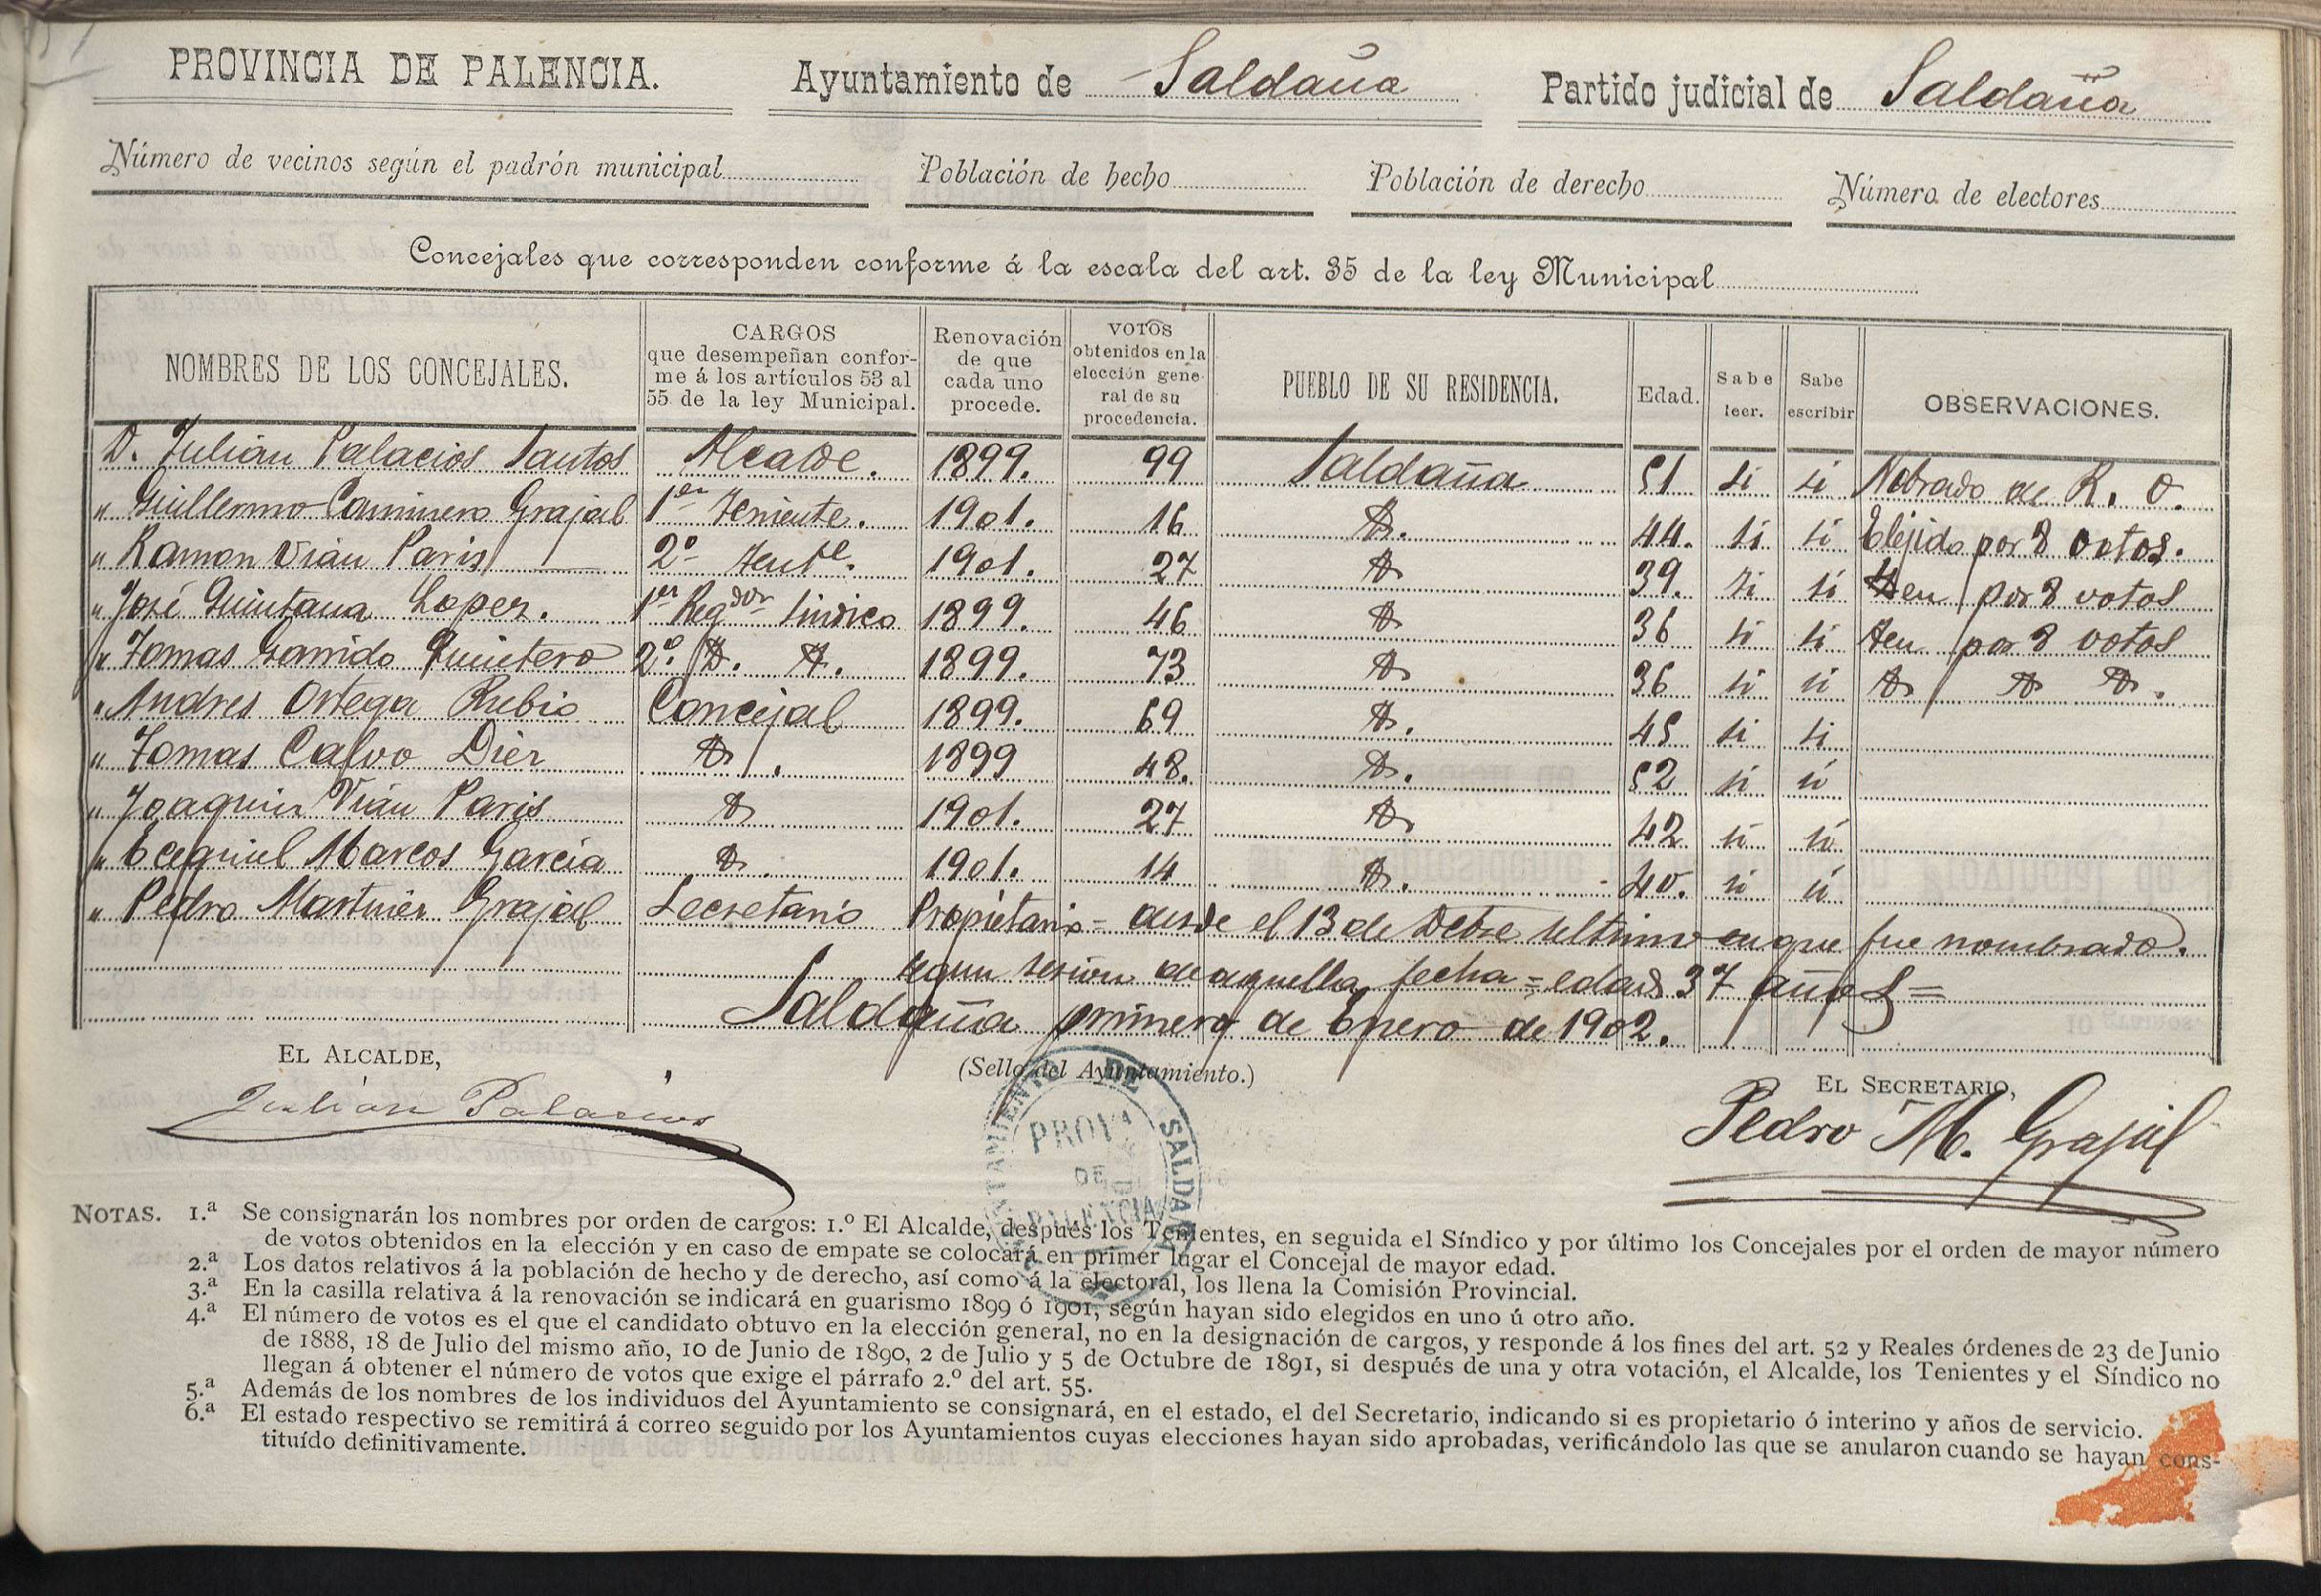 PROVINCIA DE PALENCIA. Ayuntamiento de Saldaña Partido judicial de Saldaña
Número de vecinos según el padrón municipal Población de hecho Población de derecho Número de electores
Concejales que corresponden conforme á la escala del art. 35 de la ley Municipal
NOMBRES DE LOS CONCEJALES. CARGOS que desempeñan conforme á los artículos 53 al 55 de la ley Municipal. Renovación de que cada uno procede. VOTOS obtenidos en la elección general de su procedencia. PUEBLO DE SU RESIDENCIA. Edad. Sabe leer. Sabe escribir OBSERVACIONES.
D. Julián Palacios Santos Alcalde. 1899. 99 Saldaña 51 si si Nobrado de R. O.
" Guillermo Caminero Grajal 1er Teniente. 1901. 16 Id. 44. si si Elejido por 8 votos.
" Ramon Vián Paris 2º Tente. 1901. 27 Id 39. si si Iden por 8 votos
" José Quintana Lopez. 1er Regdor Sindico 1899. 46 Id 36 si si Iden por 8 votos
" Tomas Garrido Quintero 2º. Id. Id. 1899. 73 Id 36 si si Id Id Id.
" Andres Ortega Rubio Concejal 1899. 69 Id. 45 si si
" Tomas Calvo Diez Id. 1899 48. Id. 52 si si
" Joaquin Vián Paris Id 1901. 27 Id 42 si si
" Ecequiel Marcos García Id. 1901. 14 Id. 40. si si
" Pedro Martinez Grajal Secretario Propietario = desde el 13 de Dbre ultimo en que fue nombrado.
segun sesion de aquella fecha = edad 37 años =
Saldaña primero de Enero de 1902.
EL ALCALDE, (Sello del Ayuntamiento.) EL SECRETARIO,
Julián Palacios Pedro M. Grajal
AYUNTAMIENTO DE SALDAÑA
PROVª
DE
PALENCIA
NOTAS. 1.ª Se consignarán los nombres por orden de cargos: 1.º El Alcalde, después los Tenientes, en seguida el Síndico y por último los Concejales por el orden de mayor número
de votos obtenidos en la elección y en caso de empate se colocará en primer lugar el Concejal de mayor edad.
2.ª Los datos relativos á la población de hecho y de derecho, así como á la electoral, los llena la Comisión Provincial.
3.ª En la casilla relativa á la renovación se indicará en guarismo 1899 ó 1901, según hayan sido elegidos en uno ú otro año.
4.ª El número de votos es el que el candidato obtuvo en la elección general, no en la designación de cargos, y responde á los fines del art. 52 y Reales órdenes de 23 de Junio
de 1888, 18 de Julio del mismo año, 10 de Junio de 1890, 2 de Julio y 5 de Octubre de 1891, si después de una y otra votación, el Alcalde, los Tenientes y el Síndico no
llegan á obtener el número de votos que exige el párrafo 2.º del art. 55.
5.ª Además de los nombres de los individuos del Ayuntamiento se consignará, en el estado, el del Secretario, indicando si es propietario ó interino y años de servicio.
6.ª El estado respectivo se remitirá á correo seguido por los Ayuntamientos cuyas elecciones hayan sido aprobadas, verificándolo las que se anularon cuando se hayan cons-
tituído definitivamente.